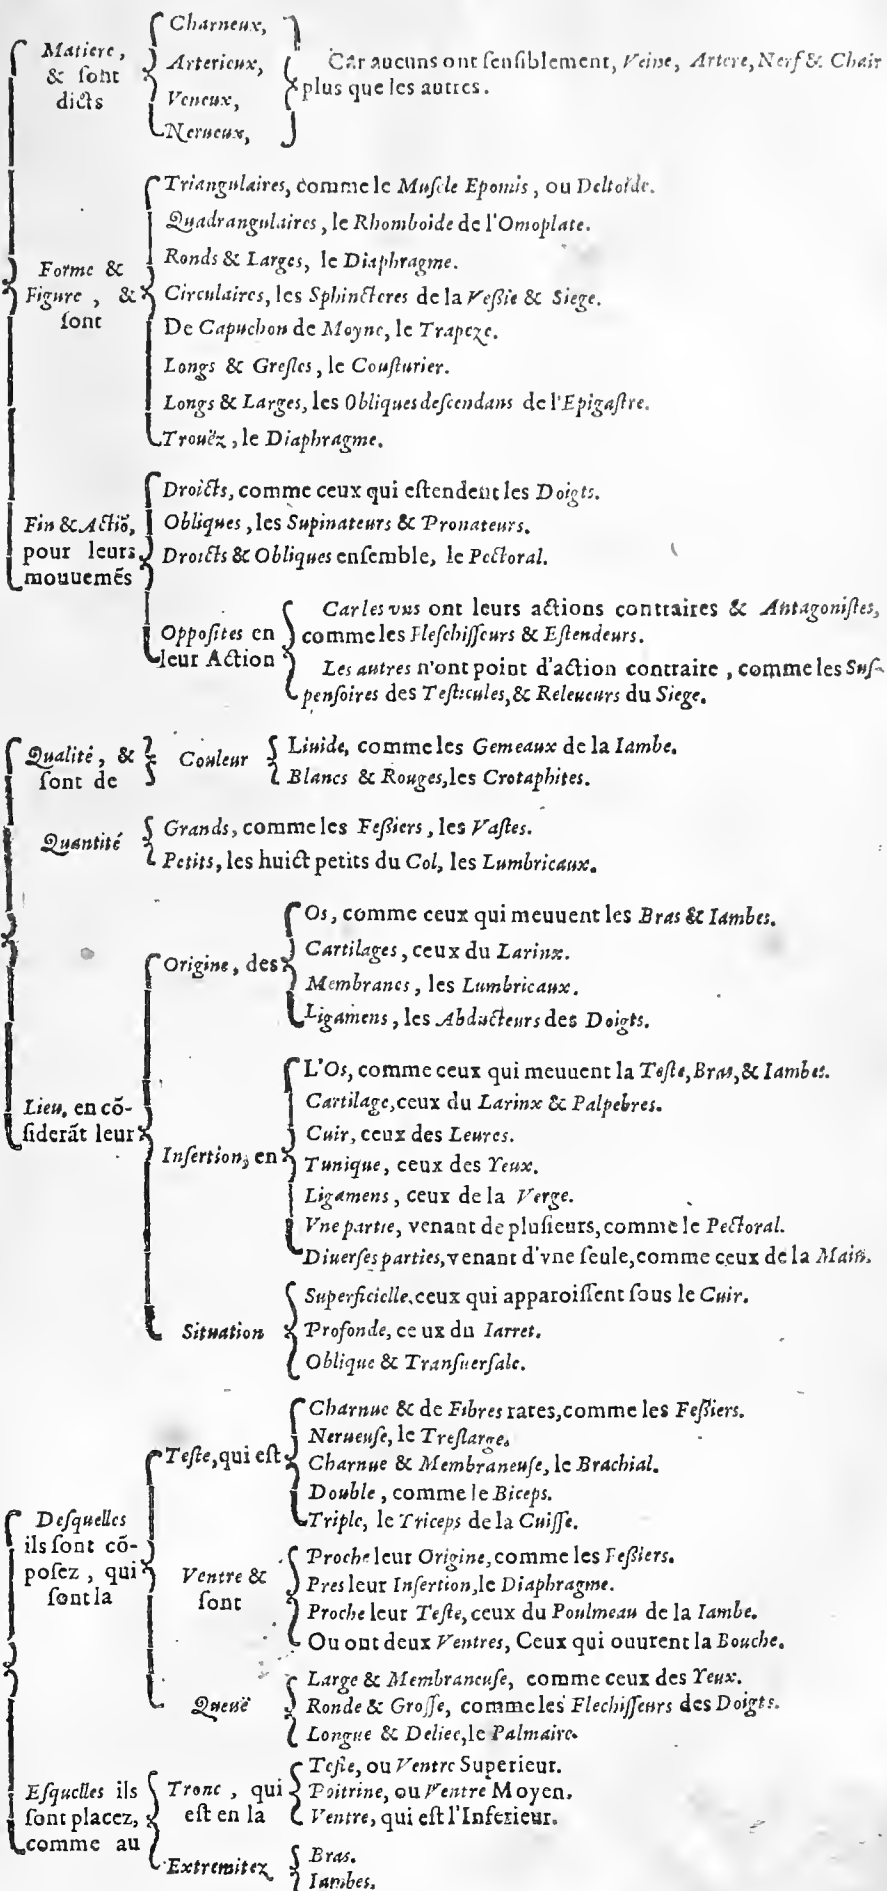 Matiere, & ſont dicts
Charneux,
Arterieux,
Veneux,
Nerueux,
Car aucuns ont ſenſiblement, Veine, Artere, Nerf & Chair
plus que les autres.
Forme & Figure, & ſont
Triangulaires, comme le Muſcle Epomis, ou Deltoïde.
Quadrangulaires, le Rhomboide de l'Omoplate.
Ronds & Larges, le Diaphragme.
Circulaires, les Sphincteres de la Veſſie & Siege.
De Capuchon de Moyne, le Trapeze.
Longs & Greſles, le Couſturier.
Longs & Larges, les Obliques deſcendans de l'Epigaſtre.
Trouëz, le Diaphragme.
Fin & Actiõ, pour leurs mouuemẽs
Droicts, comme ceux qui eſtendent les Doigts.
Obliques, les Supinateurs & Pronateurs.
Droicts & Obliques enſemble, le Pectoral.
Oppoſites en leur Action
Car les vns ont leurs actions contraires & Antagoniſtes,
comme les Fleſchiſſeurs & Eſtendeurs.
Les autres n'ont point d'action contraire, comme les Suſ-
penſoires des Teſticules, & Releueurs du Siege.
Qualité, & ſont de
Couleur
Liuide, comme les Gemeaux de la Iambe.
Blancs & Rouges, les Crotaphites.
Quantité
Grands, comme les Feſſiers, les Vaſtes.
Petits, les huict petits du Col, les Lumbricaux.
Lieu, en cõ-
ſiderãt leur
Origine, des
Os, comme ceux qui meuuent les Bras & Iambes.
Cartilages, ceux du Larinx.
Membranes, les Lumbricaux.
Ligamens, les Abducteurs des Doigts.
Inſertion, en
L'Os, comme ceux qui meuuent la Teſte, Bras, & Iambes.
Cartilage, ceux du Larinx & Palpebres.
Cuir, ceux des Leures.
Tunique, ceux des Yeux.
Ligamens, ceux de la Verge.
Vne partie, venant de pluſieurs, comme le Pectoral.
Diuerſes parties, venant d'vne ſeule, comme ceux de la Main.
Situation
Superficielle, ceux qui apparoiſſent ſous le Cuir.
Profonde, ceux du Iarret.
Oblique & Tranſuerſale.
Deſquelles ils ſont cõ-
poſez, qui ſont la
Teſte, qui eſt
Charnue & de Fibres rares, comme les Feſſiers.
Nerueuſe, le Treſlarge.
Charnue & Membraneuſe, le Brachial.
Double, comme le Biceps.
Triple, le Triceps de la Cuiſſe.
Ventre & ſont
Proche leur Origine, comme les Feſſiers.
Pres leur Inſertion, le Diaphragme.
Proche leur Teſte, ceux du Poulmeau de la Iambe.
Ou ont deux Ventres, Ceux qui ouurent la Bouche.
Queuë
Large & Membraneuſe, comme ceux des Yeux.
Ronde & Groſſe, comme les Flechiſſeurs des Doigts.
Longue & Deliee, le Palmaire.
Eſquelles ils ſont placez, comme au
Tronc, qui eſt en la
Teſte, ou Ventre Superieur.
Poitrine, ou Ventre Moyen.
Ventre, qui eſt l'Inferieur.
Extremitez
Bras.
Iambes.